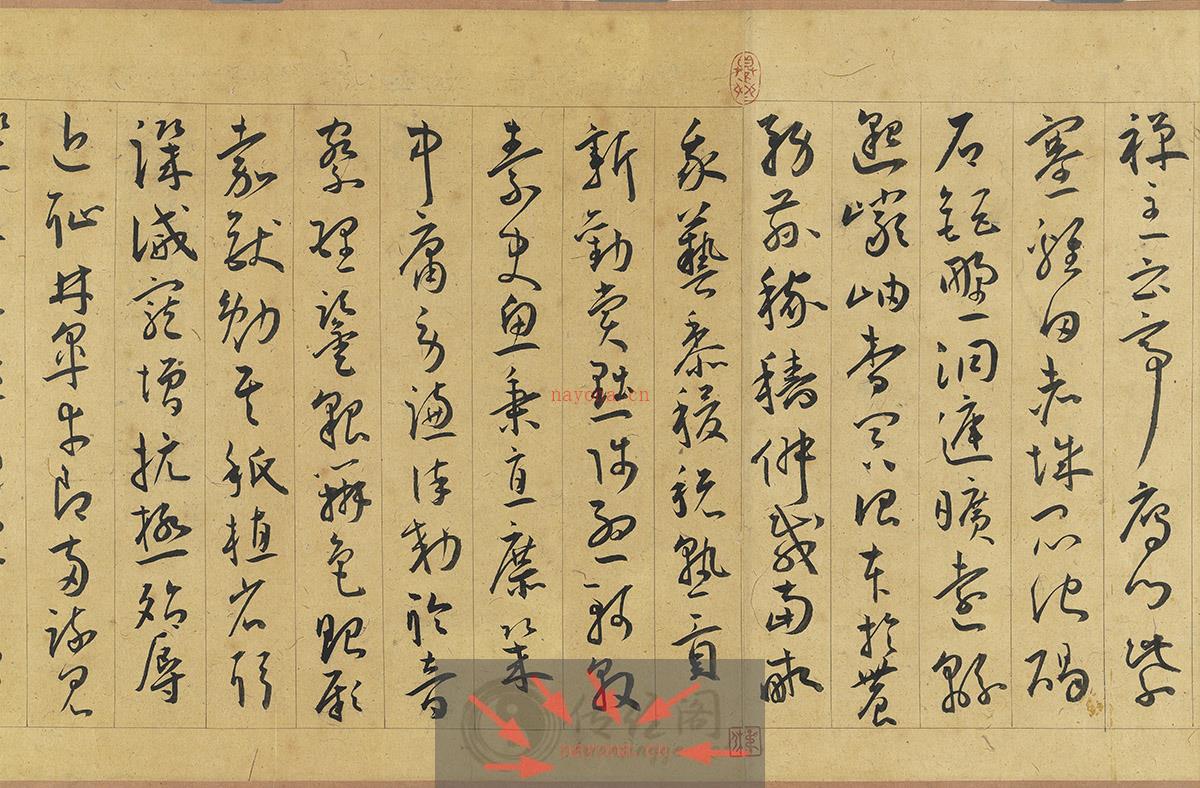 禪主云亭鴈門紫
塞雞田赤城昆池碣
石鉅野洞庭曠遠緜
邈巖岫杳冥治本於農
務茲稼穡俶載南畝
我藝黍稷稅熟貢
新勸賞黜陟孟軻敦
素史魚秉直庶幾
中庸勞謙謹敕聆音
察理鑒貌辨色貽厥
嘉猷勉其祗植省躬
譏誡寵增抗極殆辱
近恥林皋幸即兩疏見
nayona.cn
传经阁